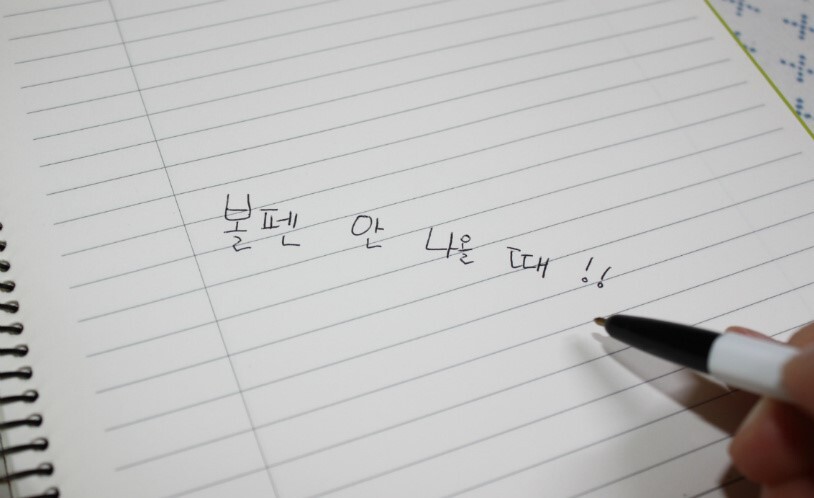 볼펜 안 나올 때 !!